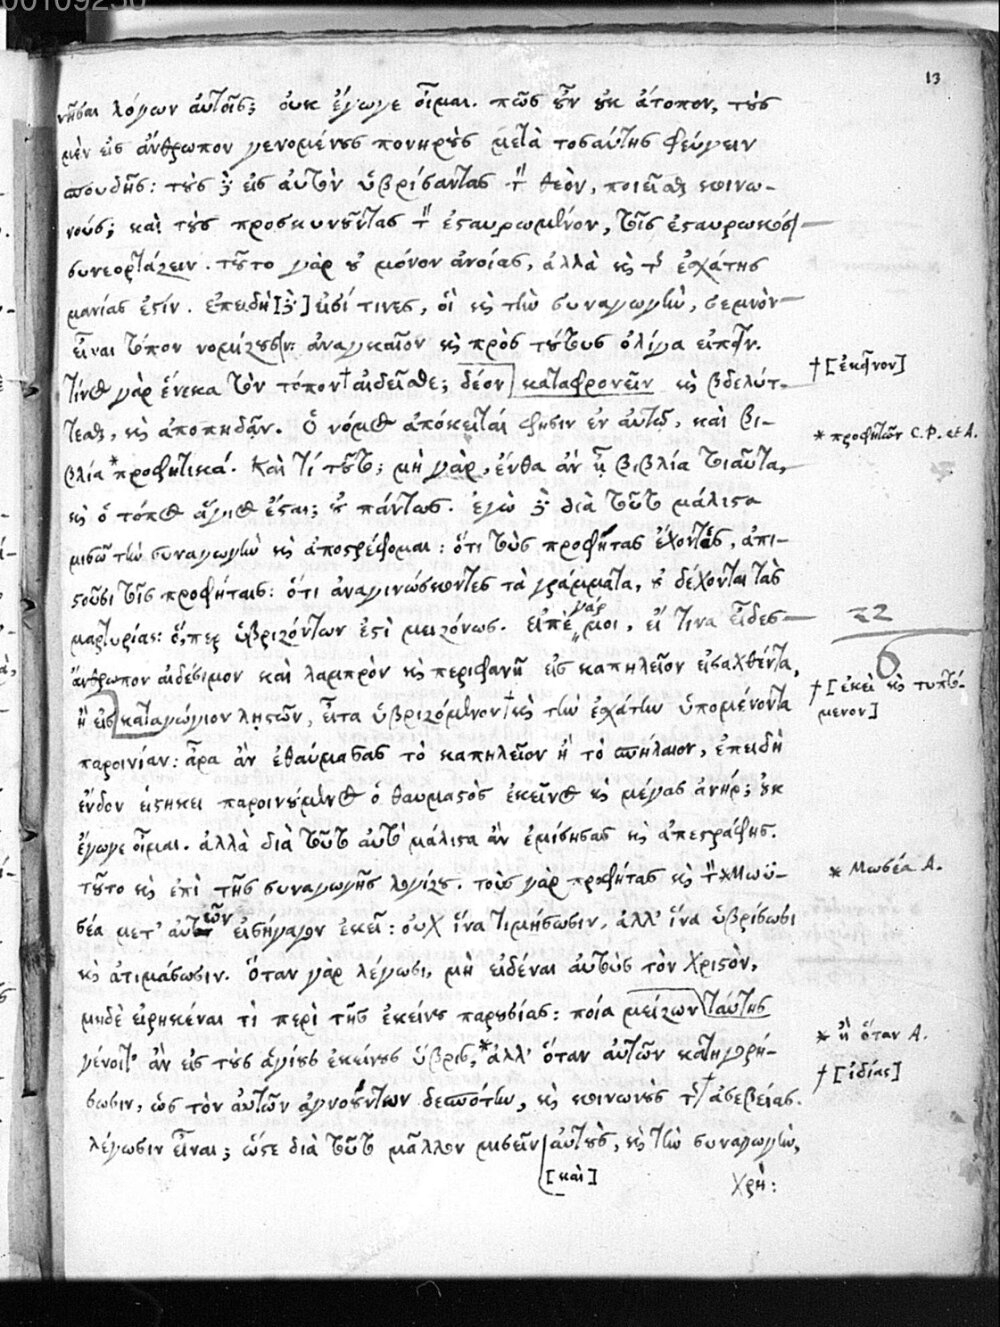 00109250
13
νῆσαι λόγων αὐτοῖς; οὐκ ἔγωγε οἶμαι. πῶς οὖν οὐκ ἄτοπον, τοὺς
μὲν εἰς ἄνθρωπον γενομένους πονηροὺς μετὰ τοσαύτης φεύγειν
σπουδῆς: τοὺς δὲ εἰς αὐτὸν ὑβρίσαντας τὸν θεὸν, ποιεῖσθαι κοινω-
νούς; καὶ τοὺς προσκυνοῦντας τὸν ἐσταυρωμένον, τοῖς ἐσταυρωκόσι
συνεορτάζειν. τοῦτο γὰρ οὐ μόνον ἀνοίας, ἀλλὰ καὶ τῆς ἐσχάτης
μανίας ἐστίν. ἐπειδὴ [δέ] εἰσί τινες, οἳ καὶ τὴν συναγωγὴν, σεμνὸν
εἶναι τόπον νομίζουσιν: ἀναγκαῖον καὶ πρὸς τούτους ὀλίγα εἰπεῖν.
τίνος γὰρ ἕνεκα τὸν τόπον † αἰδεῖσθε; δέον καταφρονεῖν καὶ βδελύτ- † [ἐκεῖνον]
τεσθαι, καὶ ἀποπηδᾶν. Ὁ νόμος ἀπόκειταί φησιν ἐν αὐτῷ, καὶ βι- * προφητῶν C.P. et A.
βλία * προφητικά. Καὶ τί τοῦτο; μὴ γὰρ, ἔνθα ἂν ᾖ βιβλία τοιαῦτα,
καὶ ὁ τόπος ἅγιος ἔσται; οὐ πάντως. ἐγὼ δὲ διὰ τοῦτο μάλιστα
μισῶ τὴν συναγωγὴν καὶ ἀποστρέφομαι: ὅτι τοὺς προφήτας ἔχοντες, ἀπι-
στοῦσι τοῖς προφήταις: ὅτι ἀναγινώσκοντες τὰ γράμματα, οὐ δέχονται τὰς
μαρτυρίας: ὅπερ ὑβριζόντων ἐστὶ μειζόνως. εἰπὲ γάρ μοι, εἴ τινα εἶδες
ἄνθρωπον αἰδέσιμον καὶ λαμπρὸν καὶ περιφανῆ εἰς καπηλεῖον εἰσαχθέντα,
ἢ εἰς καταγώγιον λῃστῶν, εἶτα ὑβριζόμενον † καὶ τὴν ἐσχάτην ὑπομένοντα † [ἐκεῖ καὶ τυπτό-
μενον]
παροινίαν: ἆρα ἂν ἐθαύμασας τὸ καπηλεῖον ἢ τὸ σπήλαιον, ἐπειδὴ
ἔνδον εἱστήκει παροινούμενος ὁ θαυμαστὸς ἐκεῖνος καὶ μέγας ἀνήρ; οὐκ
ἔγωγε οἶμαι. ἀλλὰ διὰ τοῦτο αὐτὸ μάλιστα ἂν ἐμίσησας καὶ ἀπεστράφης.
τοῦτο καὶ ἐπὶ τῆς συναγωγῆς λογίζου. τοὺς γὰρ προφήτας καὶ τὸν * Μωϋ- * Μωσέα A.
σέα μετ' αὐτῶν εἰσήγαγον ἐκεῖ: οὐχ ἵνα τιμήσωσιν, ἀλλ' ἵνα ὑβρίσωσι
καὶ ἀτιμάσωσιν. Ὅταν γὰρ λέγωσι, μὴ εἰδέναι αὐτοὺς τὸν Χριστὸν,
μηδὲ εἰρηκέναι τὶ περὶ τῆς ἐκείνου παρουσίας: ποία μείζων ταύτης
γένοιτ' ἂν εἰς τοὺς ἁγίους ἐκείνους ὕβρις, * ἀλλ' ὅταν αὐτῶν κατηγορή- * ἢ ὅταν A.
σωσιν, ὡς τὸν αὐτῶν ἀγνοούντων δεσπότην, καὶ κοινωνοὺς τῆς † ἀσεβείας † [ἰδίας]
λέγωσιν εἶναι; ὥστε διὰ τοῦτο μᾶλλον μισεῖν αὐτοὺς, καὶ τὴν συναγωγὴν,
[καὶ]
χρή: